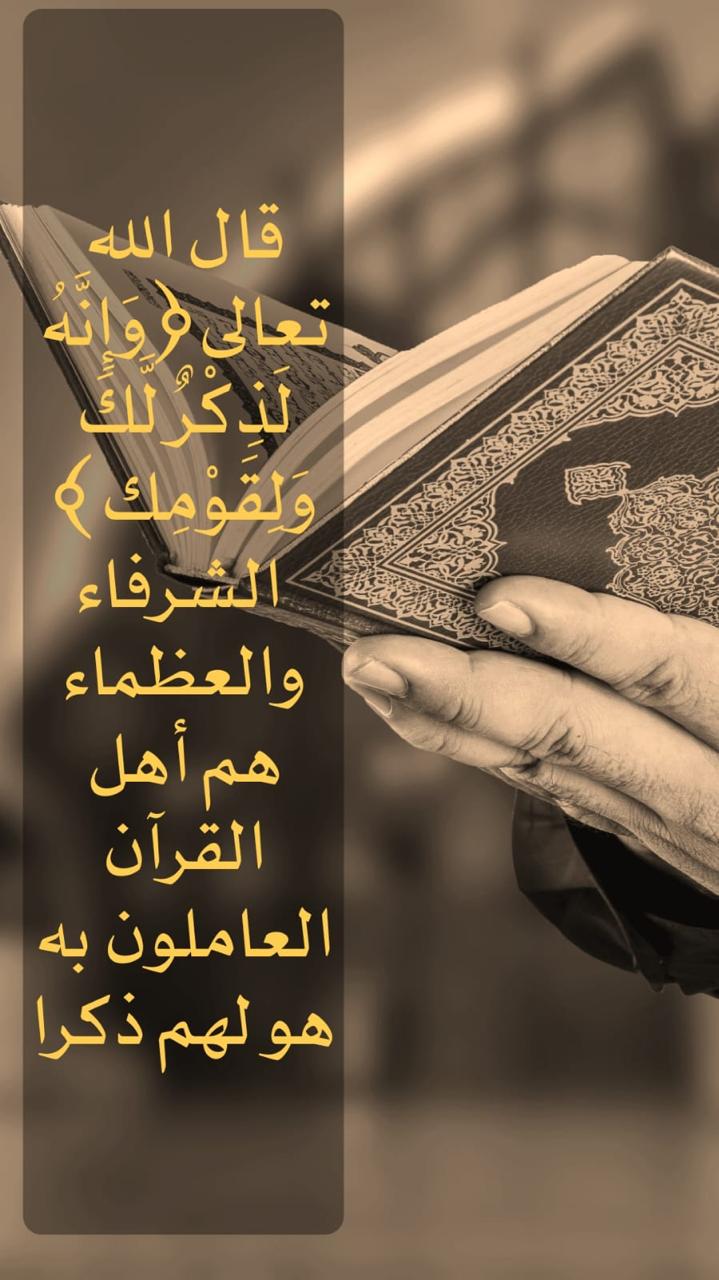 قال الله
تعالى﴿وَإِنَّهُ
لَذِكْرٌ لَّكَ
وَلِقَوْمِك ﴾
الشرفاء
والعظماء
هم أهل
القرآن
العاملون به
هو لهم ذكرا